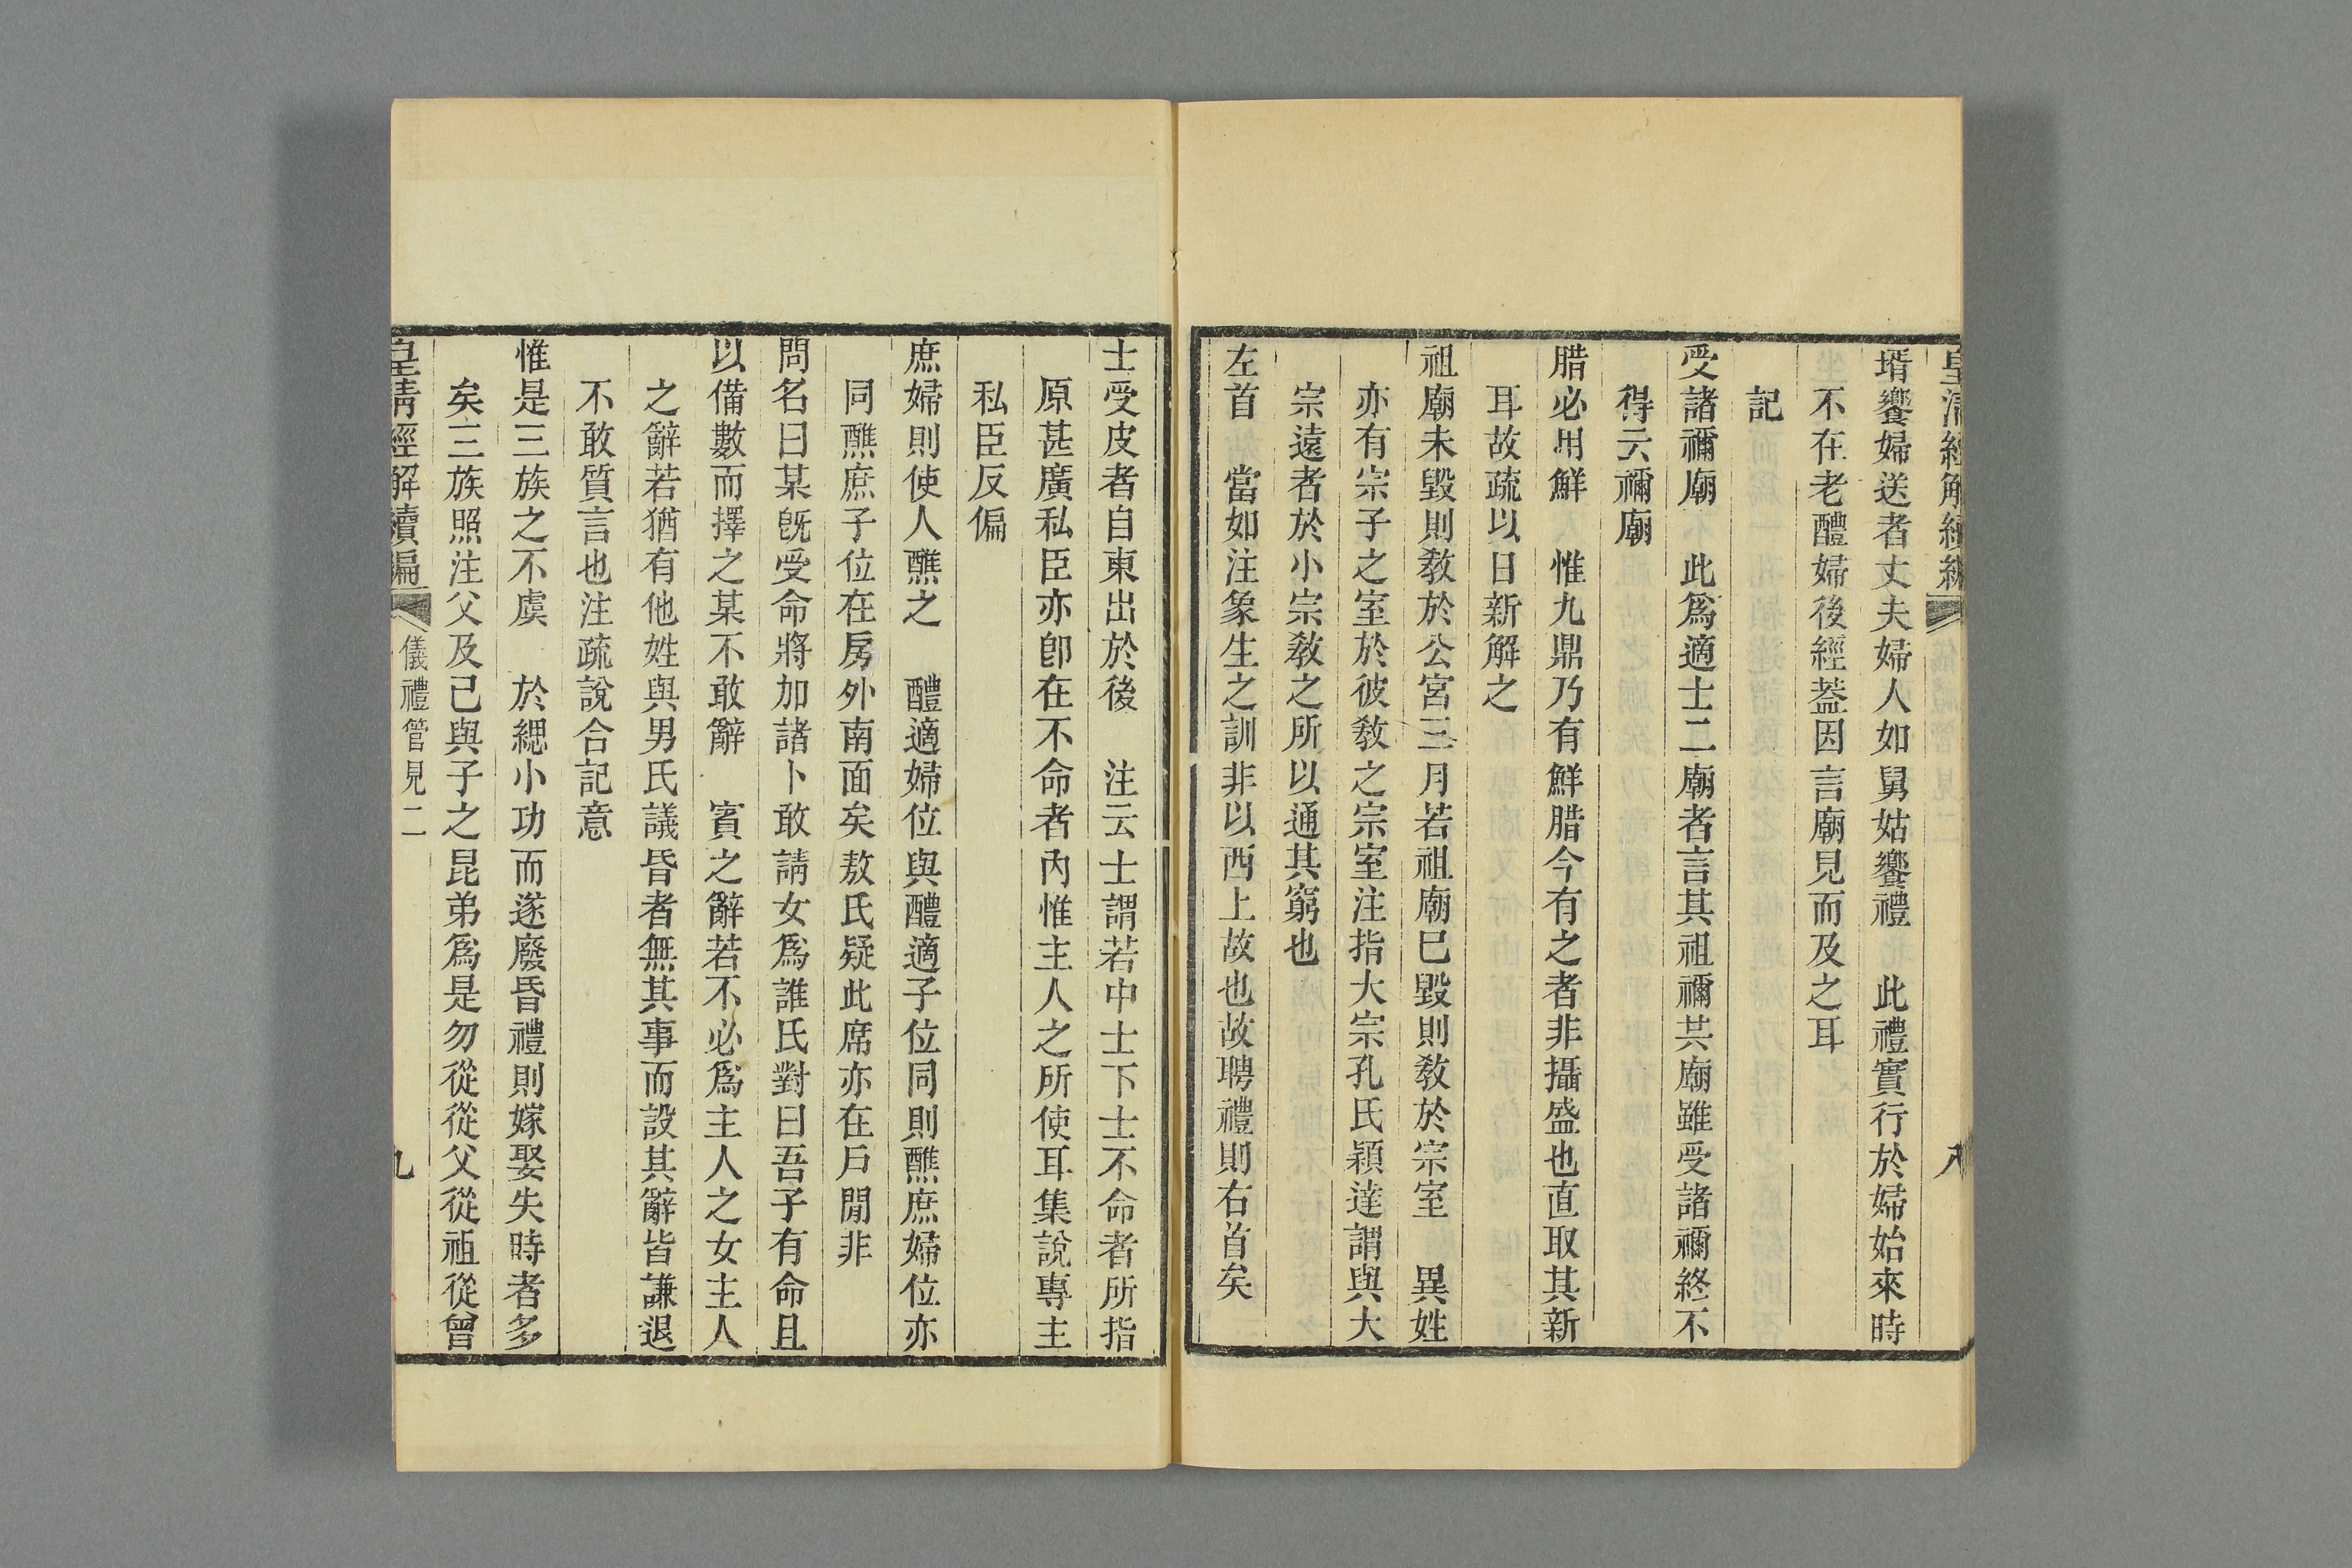 皇清經解續編 八
壻饗婦送者丈夫婦人如舅姑饗禮　此禮實行於婦始來時
不在老醴婦後經葢因言廟見而及之耳
記
受諸禰廟　此爲適士二廟者言其祖禰共廟雖受諸禰終不
得云禰廟
腊必用鮮　惟九鼎乃有鮮腊今有之者非攝盛也直取其新
耳故疏以日新解之
祖廟未毀則敎於公宮三月若祖廟巳毀則敎於宗室　異姓
亦有宗子之室於彼敎之宗室注指大宗孔氏穎達謂與大
宗遠者於小宗敎之所以通其窮也
左首　當如注象生之訓非以西上故也故聘禮則右首矣
士受皮者自東出於後　注云士謂若中士下士不命者所指
原甚廣私臣亦卽在不命者內惟主人之所使耳集說專主
私臣反偏
庶婦則使人醮之　醴適婦位與醴適子位同則醮庶婦位亦
同醮庶子位在房外南面矣敖氏疑此席亦在戶閒非
問名曰某旣受命將加諸卜敢請女爲誰氏對曰吾子有命且
以備數而擇之某不敢辭　賓之辭若不必爲主人之女主人
之辭若猶有他姓與男氏議昏者無其事而設其辭皆謙退
不敢質言也注疏說合記意
惟是三族之不虞　於緦小功而遂廢昏禮則嫁娶失時者多
矣三族照注父及己與子之昆弟爲是勿從從父從祖從曾
皇清經解續編 儀禮管見二 九